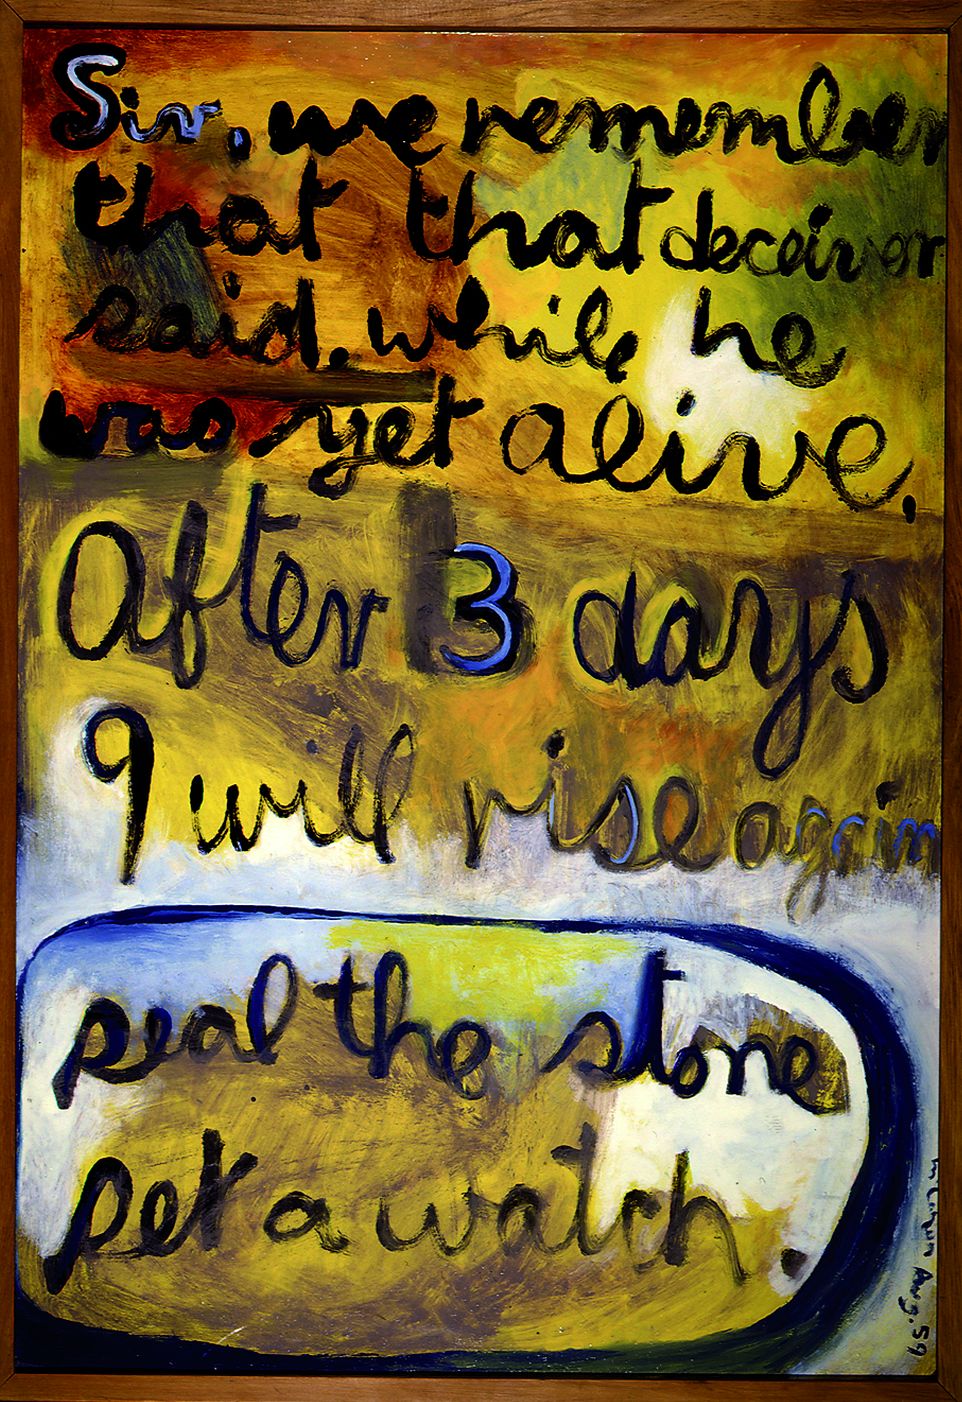 Sir, we remember
that that deceiver
said, while he
was yet alive,
After 3 days
I will rise again
seal the stone
set a watch.
McCahon Aug. 59